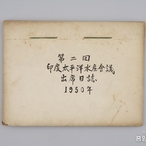 第二回
印度太平洋水産会議
出席日誌
1950年